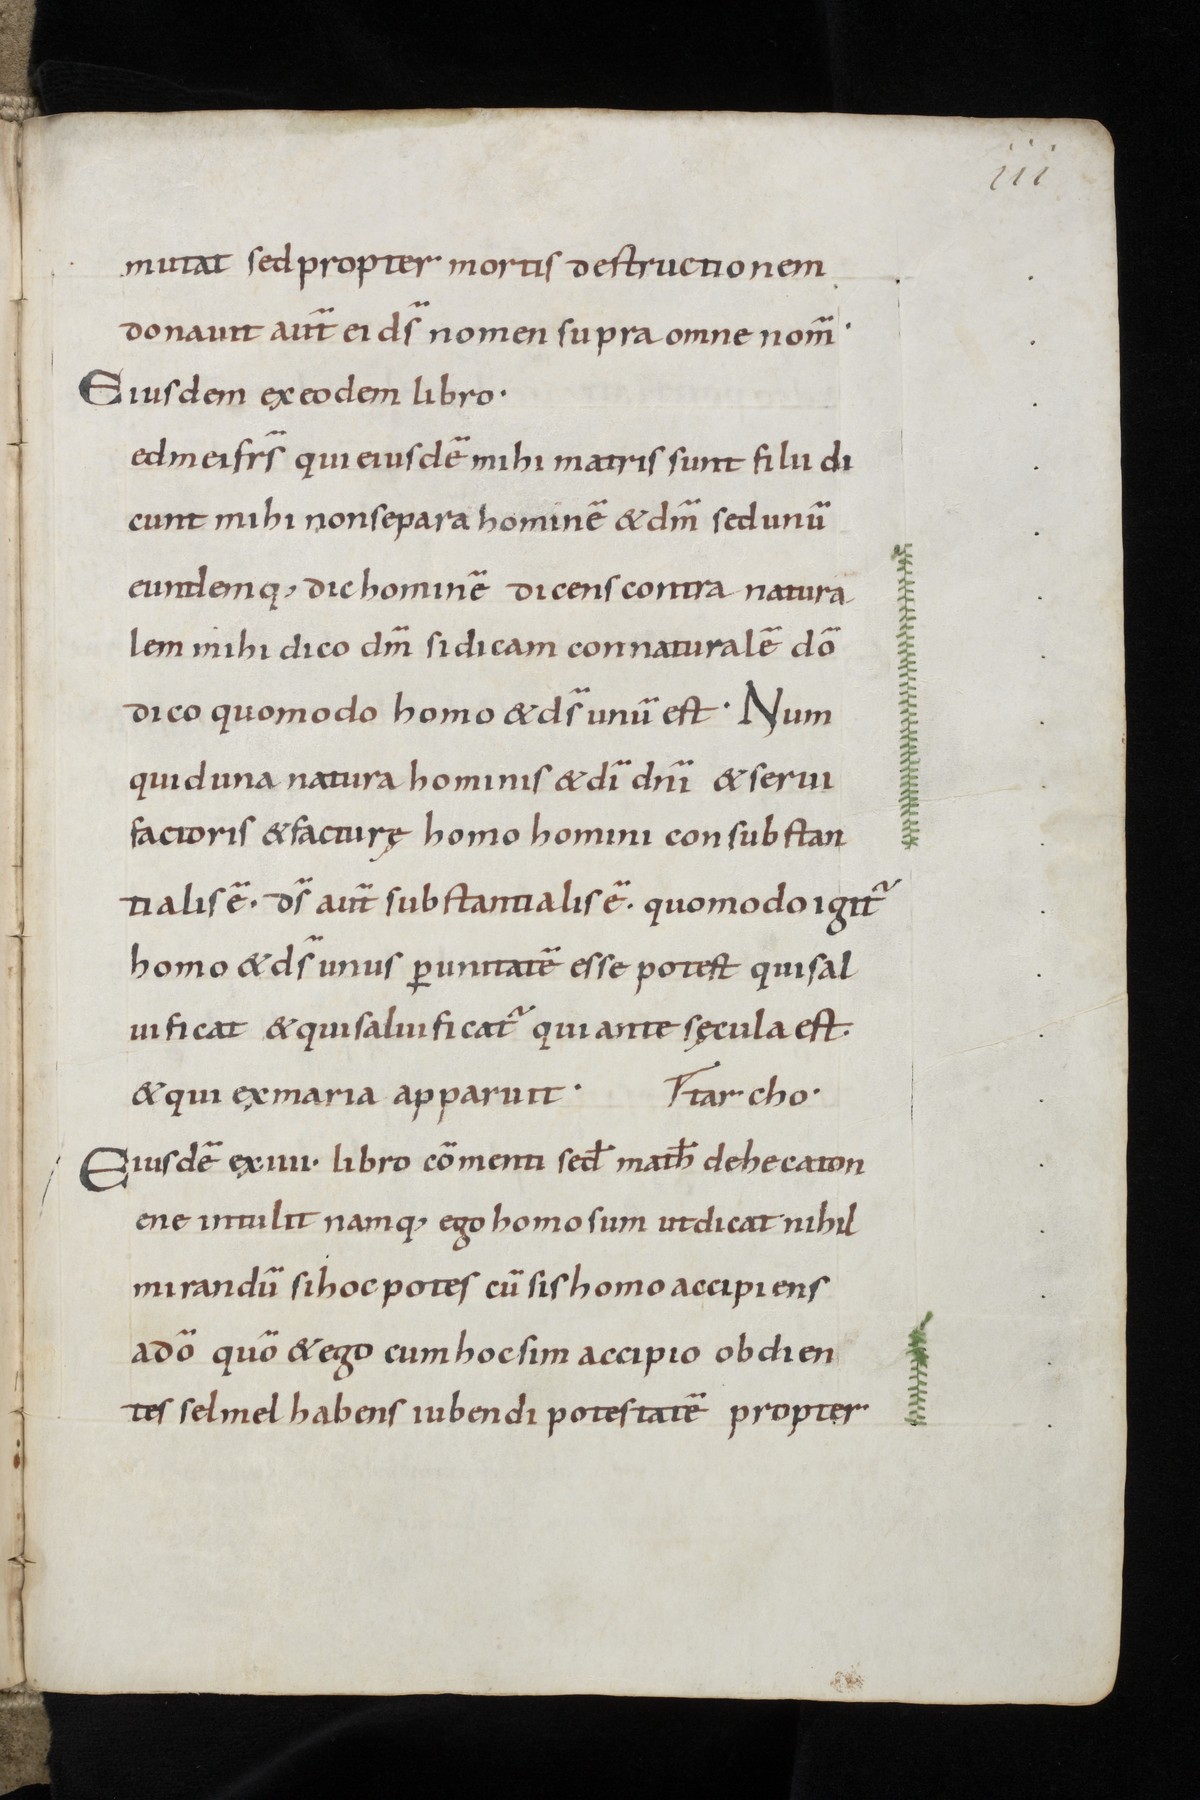 iii
mutat sed propter mortis destructionem
donauit aut̃ ei ds̃ nomen supra omne nom̃·
Eiusdem ex eodem libro·
ed mei frs̃ qui eiusdẽ mihi matris sunt filii di
cunt mihi non separa hominẽ & dm̃ sed unũ
eundemq, dic hominẽ dicens contra natura
lem mihi dico dm̃ si dicam connaturalẽ dõ
dico quomodo homo & ds̃ unũ est· Num
quid una natura hominis & dĩ dnĩ & serui
factoris & facturę homo homini consubstan
tialis ẽ. ds̃ aut̃ substantialis ẽ. quomodo igit̃
homo & ds̃ unus ꝑ unitatẽ esse potest qui sal
uificat & qui saluificat̃ qui ante sęcula est.
& qui ex maria apparuit· Ttar cho·
Eiusdẽ ex·iiii· libro cõmenti sed̅ math̅ de hecaton
ene intulit namq, ego homo sum ut dicat nihil
mirandũ si hoc potes cũ sis homo accipiens
a dõ quõ & ego cum hoc sim accipio obdien
tes selmel habens iubendi potestatẽ propter